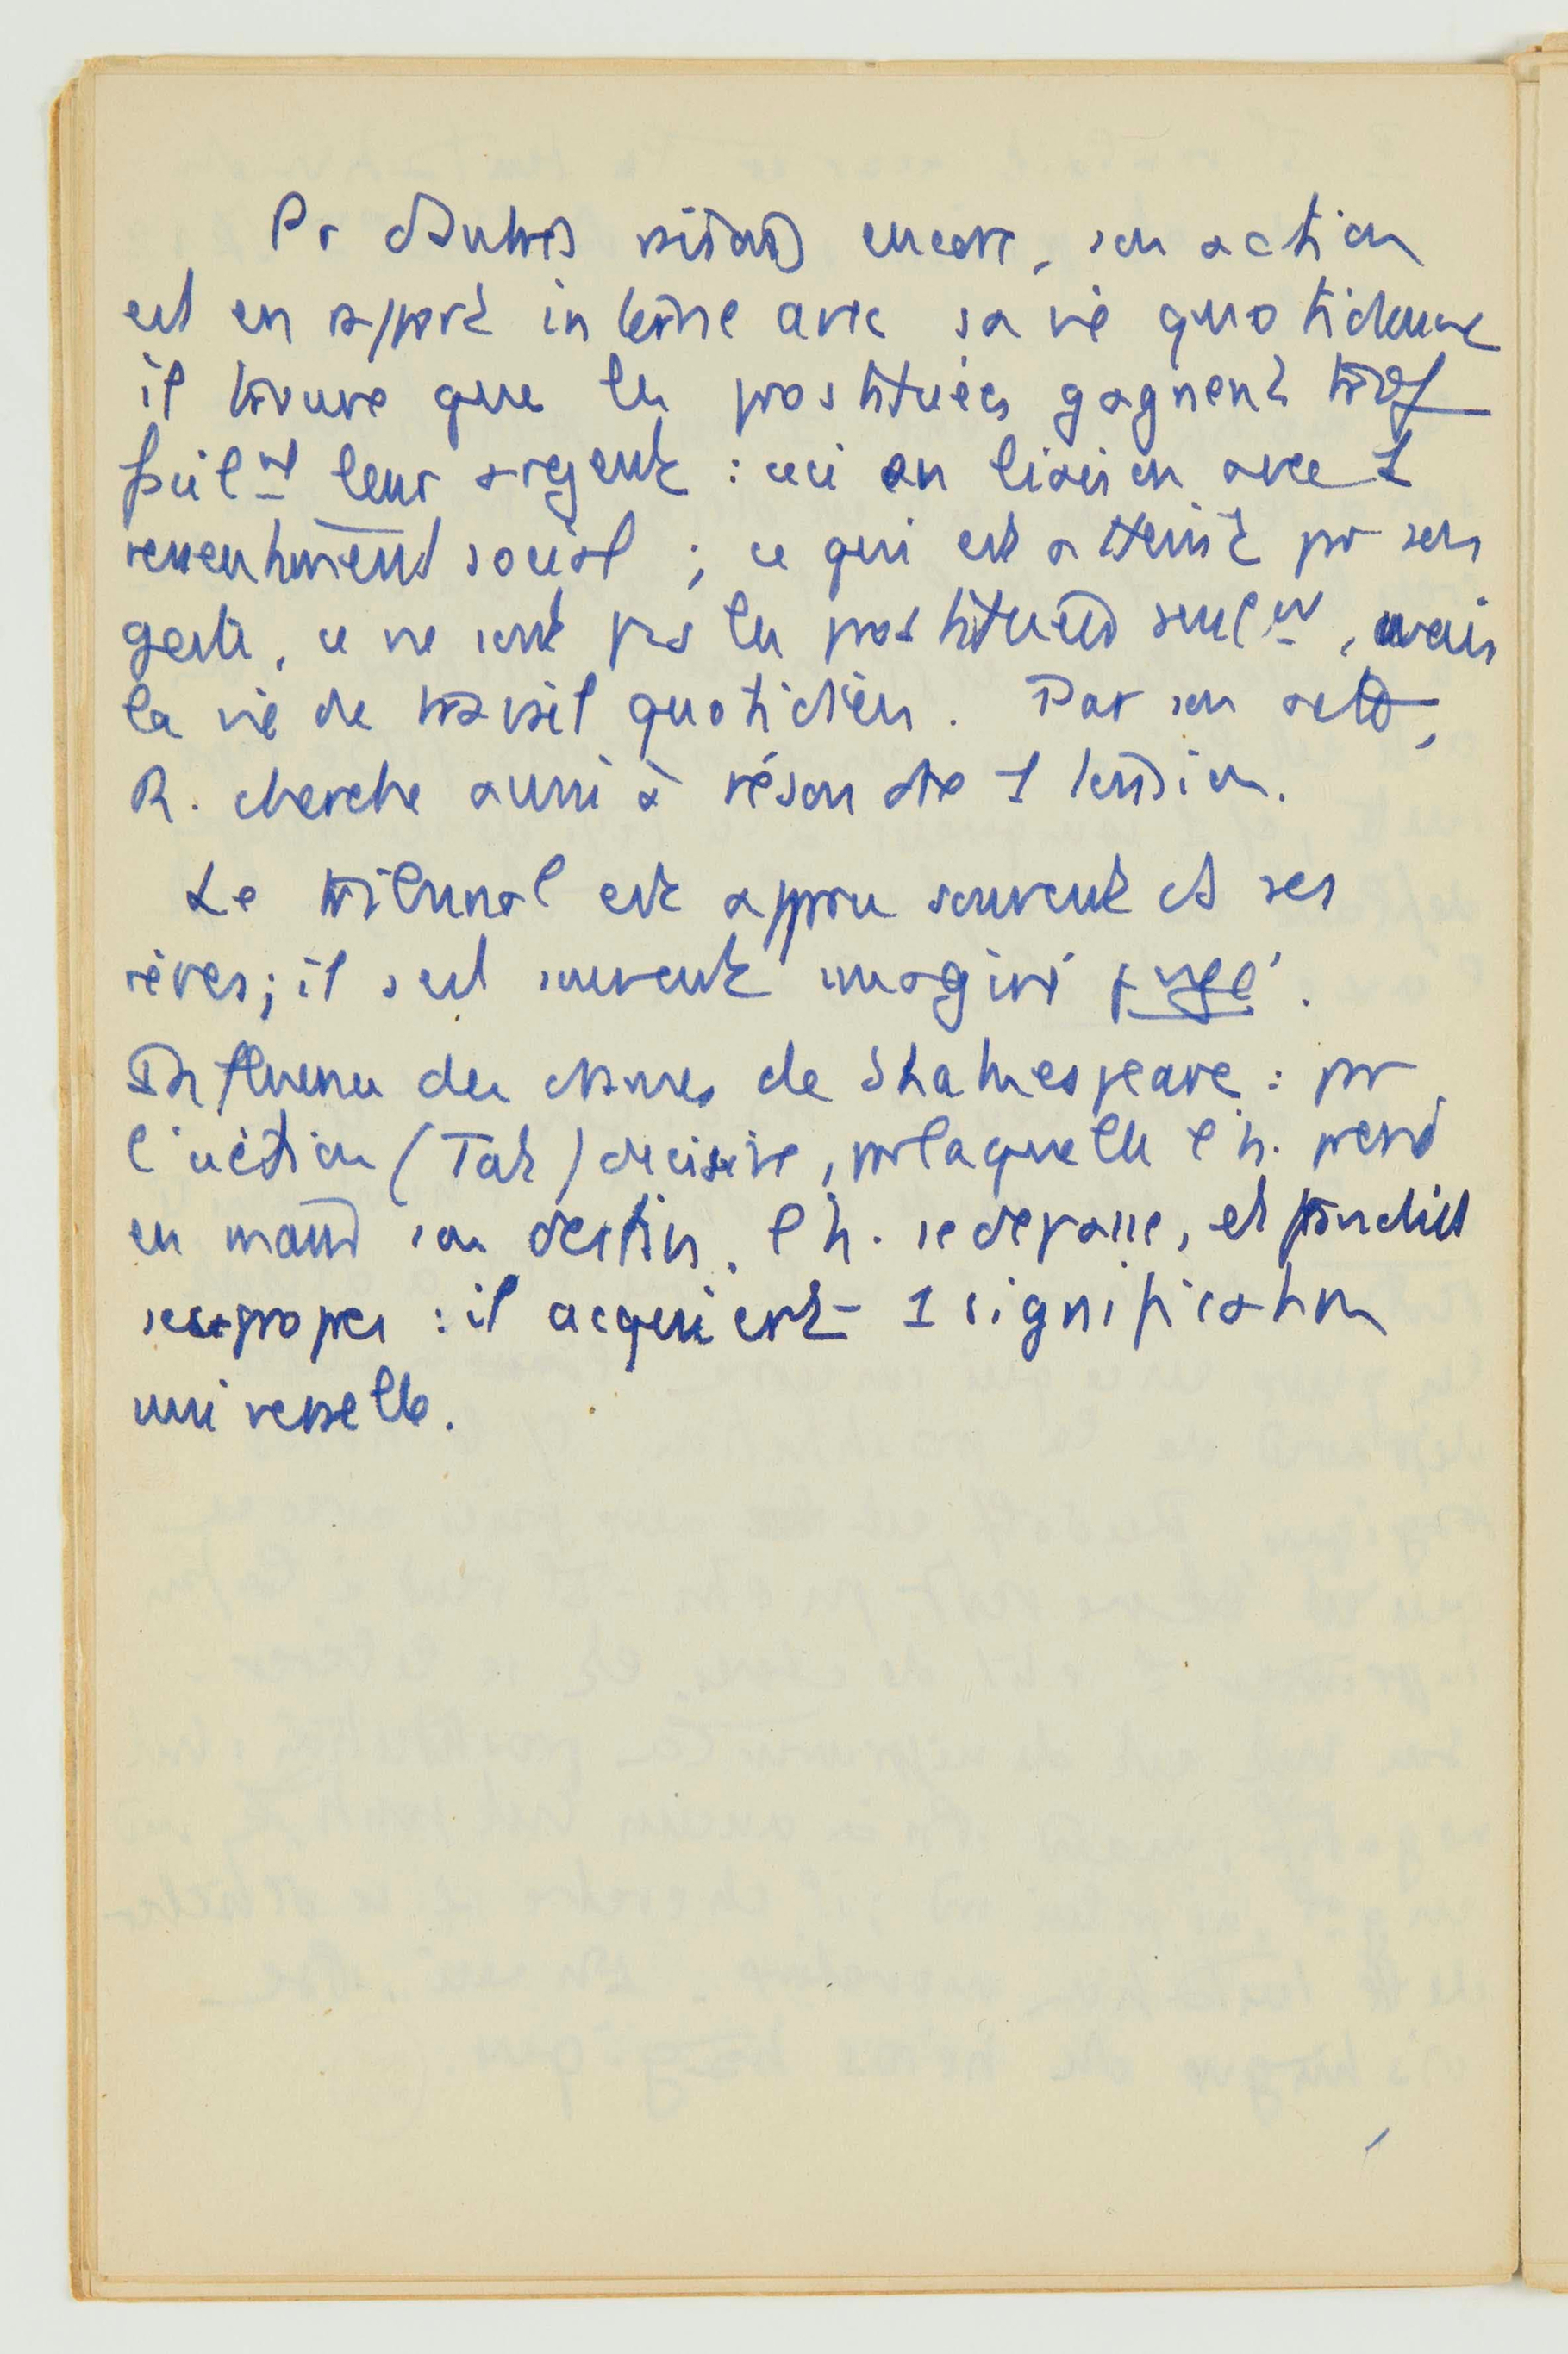 Pr d'autres raisons encore, son action
est en rapport interne avec sa vie quotidienne
il trouve que les prostituées gagnent trop
facilnt leur argent : ceci en liaison avec 1
ressentiment social ; ce qui est atteint par ses
gestes, ce ne sont pas les prostituées seulnt, mais
la vie de travail quotidien. Par son acte,
R. cherche aussi à résoudre 1 tension.
Le tribunal est apparu souvent ds ses
rêves ; il s'est souvent imaginé jugé.
Influence des drames de Shakespeare : par
l'action (Tat) décisive, par laquelle l'h. prend
en mains son destin, l'h. se dépasse, et
: il acquiert 1 signification
universelle.